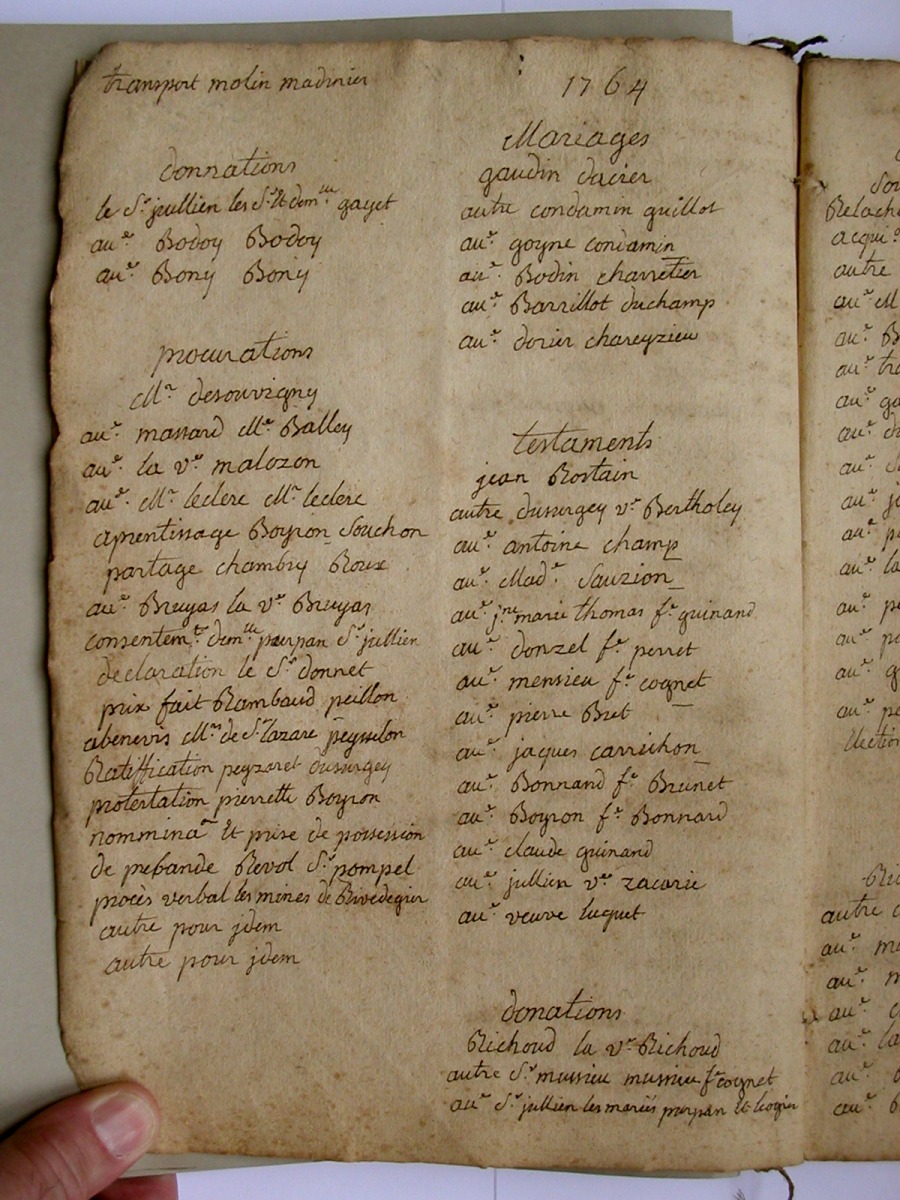 transport molin madinier
donnations
le Sr. jullien les Srs. et demlle gayet
aue. Bodoy Bodoy
aue. Bony Bony
procurations
Mr. desouvigny
aue. massard Mr. Balley
aue. la ve. malozon
aue. Mr. leclerc Mr. leclerc
aprentissage Boyron Souchon
partage chambry Roux
aue. Bruyas la ve. Bruyas
consentemt. demlle purpan Sr. jullien
declaration le Sr. donnet
prix fait Rambaud peillon
abenevis Mrs de St. lazare peysselon
Ratiffication peyzaret dusurgey
protestation pierrette Boyron
nommina~ et prise de possession
de prebande Revol Sr. pompel
procès verbal les mines de Rivedegier
autre pour jdem
autre pour jdem
1764
Mariages
gaudin dacier
autre condamin guillot
aue. goyne condamin
aue. Bodin charretier
aue. Barrillot duchamp
aue. dorier chareyzieu
testaments
jean Rostain
autre dusurgey ve. Bertholey
aue. antoine champ
aue. Made. Sauzion
aue. jne. marie thomas fe. guinand
aue. donzel fe. perret
aue. mensieu fe. cognet
aue. pierre Bret
aue. jaques carrichon
aue. Bonnand fe. Brunet
aue. Boyron fe. Bonnard
aue. claude guinand
aue. jullien ve. zacarie
aue. veuve luquet
donations
Richoud la ve. Richoud
autre Sr. mussieu mussieu fe. cognet
aue. Sr. jullien les mariés purpan et
Relach
acqui
autre
aue. M
aue. B
aue. tra
aue. ga
aue.
aue.
aue. j
aue. p
aue. la
aue. pe
aue. pe
aue. g
aue. pe
autre
aue. m
aue. m
aue.
aue. la
aue.
aue. b